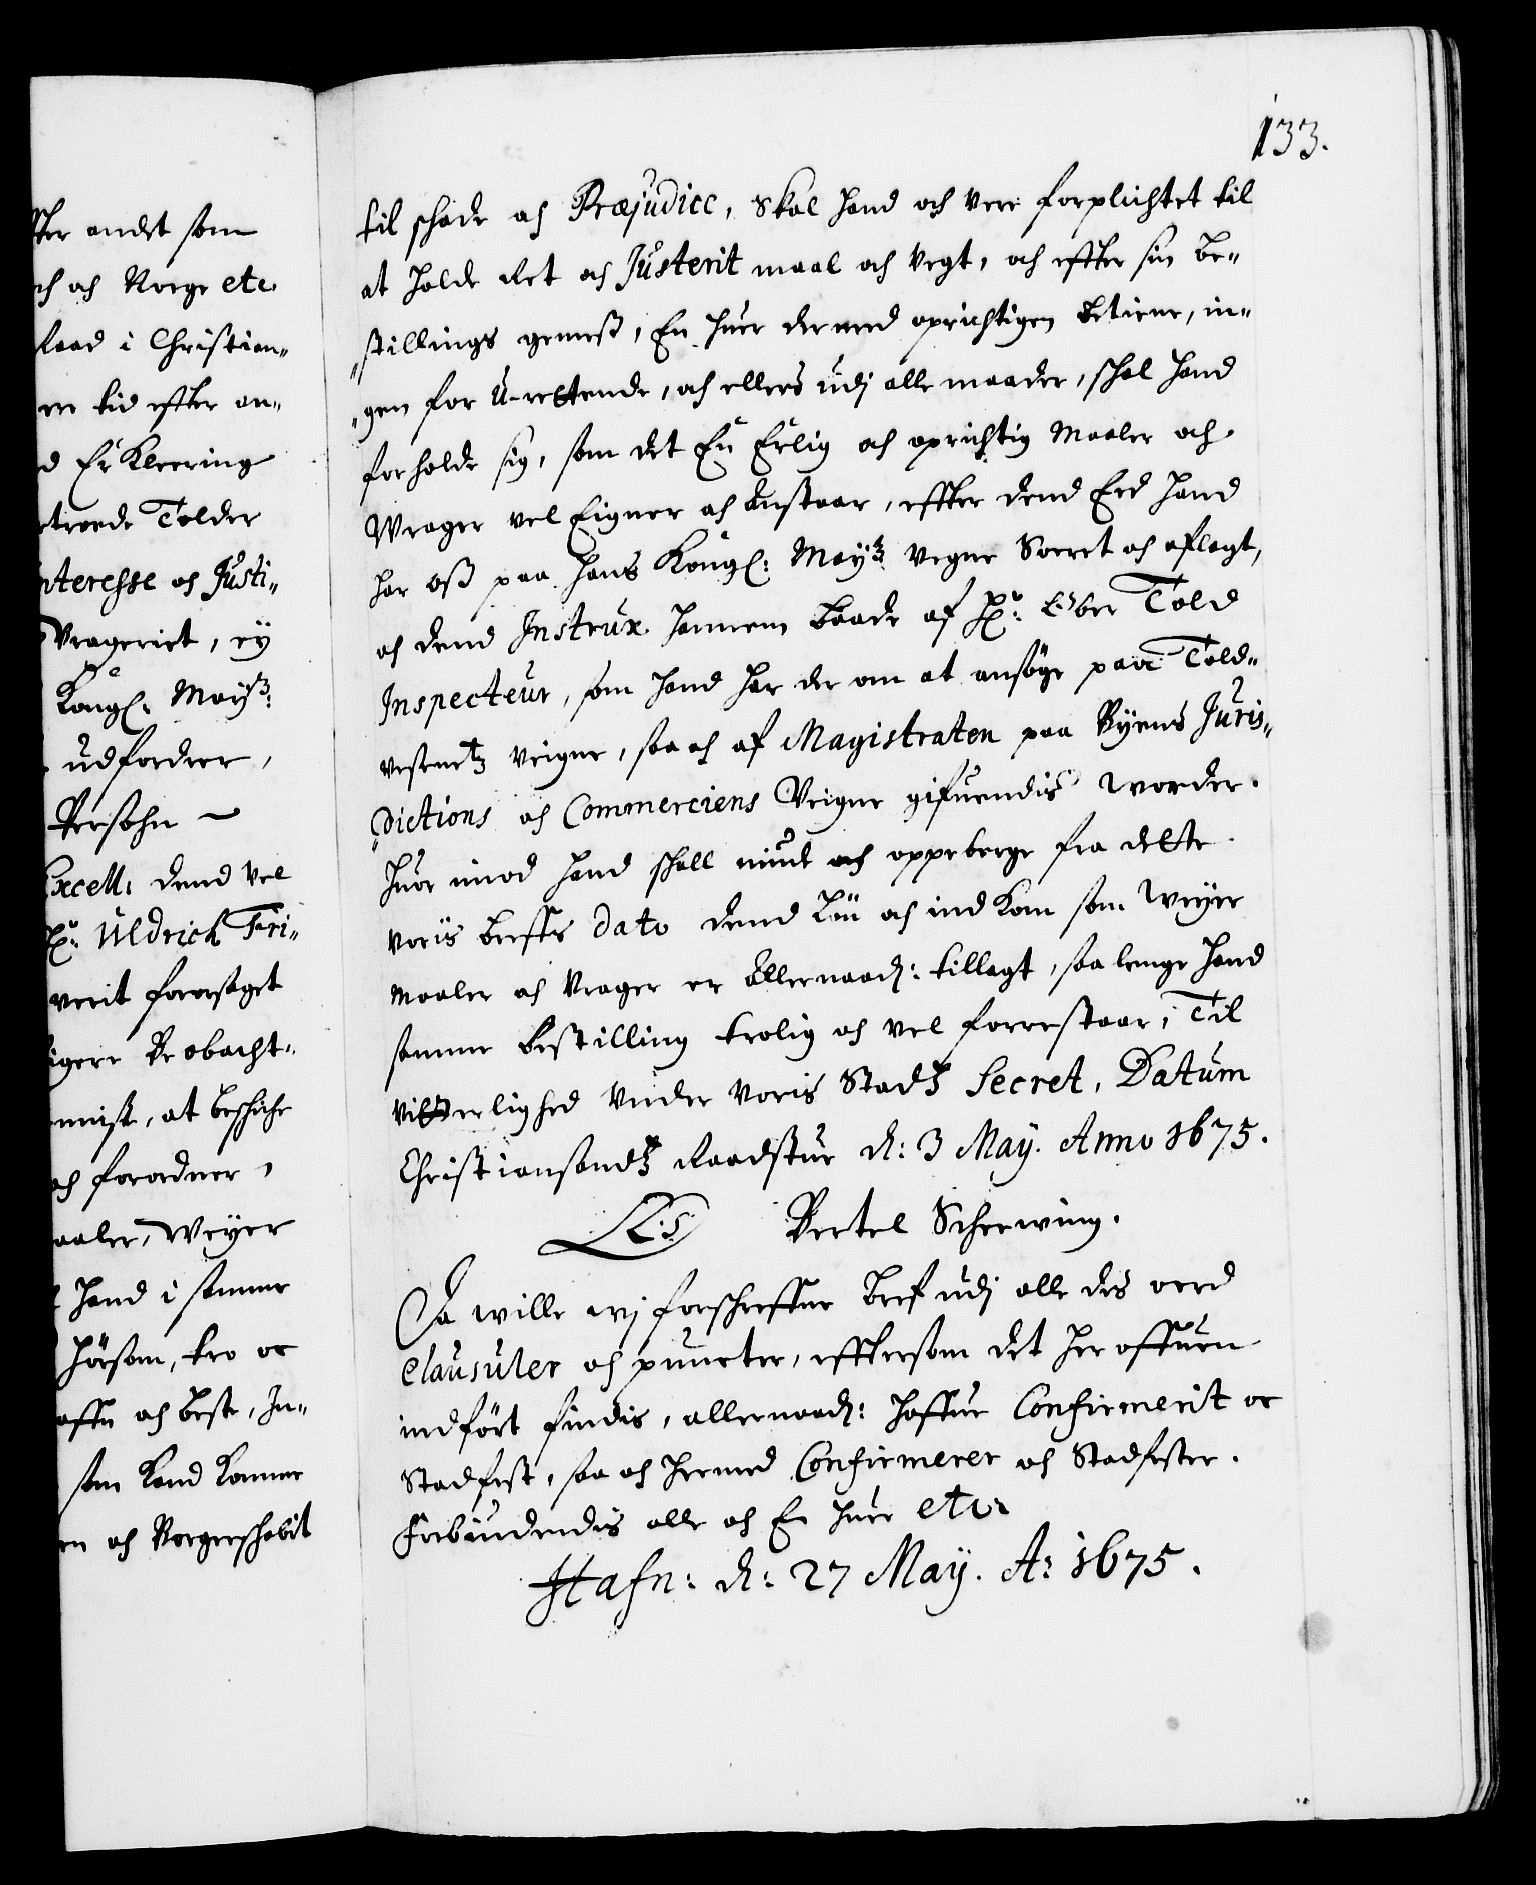 133.
ter andet som
och och Norge etc.
Raad i Christian„
en tid efter an„
d Erkleering
troede Tolder
nteresse och Justi„
Vrageriet, ej
Kongl: Maytz:
udfordrer,
Persohn ~
Excell: dend vel
Hr: Uldrich Fri„
verit foraarsaget
igere Beobacht„
mist, at beskiche
och forordner,
aaler, Weyer
hand i samme
hörsam, tro oc
affn och beste, In„
som kand komme
en och Borgerschabit
til schade och Præjudice, Skal hand och vere forplichtet til
at holde Ret och Justerit maal och Vegt, och efter sin Be„
„stillings gemess, En huer dermed oprichtigen betiene, in„
„gen for U-rettende, och ellers udj alle maader, schal hand
forholde sig, som det En Erlig och oprichtig Maaler och
Wrager vel Eigner och anstaar, effter dend Eed hand
har oss paa hans Kongl: Maytz Vegne Soeret och aflagt,
och dend Instrux hannem baade af Hr: Ober Told
Inspecteur, som hand har der om at ansöge paa Told„
vesenetz Veigne, saa och af Magistraten paa Byens Juris„
„dictions och Commerciens Veigne gifuendis worder.
Huor imod hand schall niude och oppeberge fra dette
voris breffs dato dend Lön och ind Kom som Weyer
Maaler och Vrager er Allernaadl: tillagt, saa lenge hand
samme bestilling trolig och vel forrestaar, Til
vitterlighed Under Voris Stadtz Secret, Datum
Christiansandtz Raadstue d: 3 May. Anno 1675.
L.S Bertel Scherwing.
Da wille wj forschreffne bref udj alle des oerd
Clausuler och puncter, efftersom det her offuen
indfört findis, allernaadl: haffue Confirmerit oc
Stadfest, saa och hermed Confirmerer och Stadfester.
Forbiudendis alle och En huer etc.
Hafn: d: 27 May. Ao: 1675.